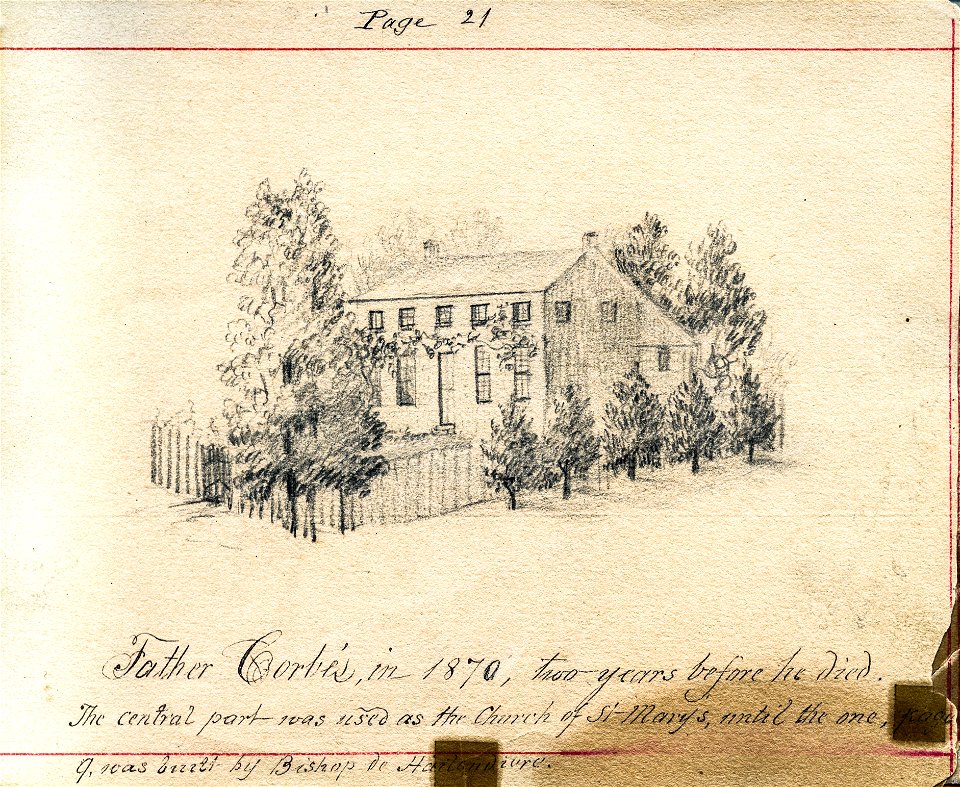 Page 21
Father Corbé's, in 1870, two years before he died.
The central part was used as the Church of St Mary's, until the one,
9, was built by Bishop de